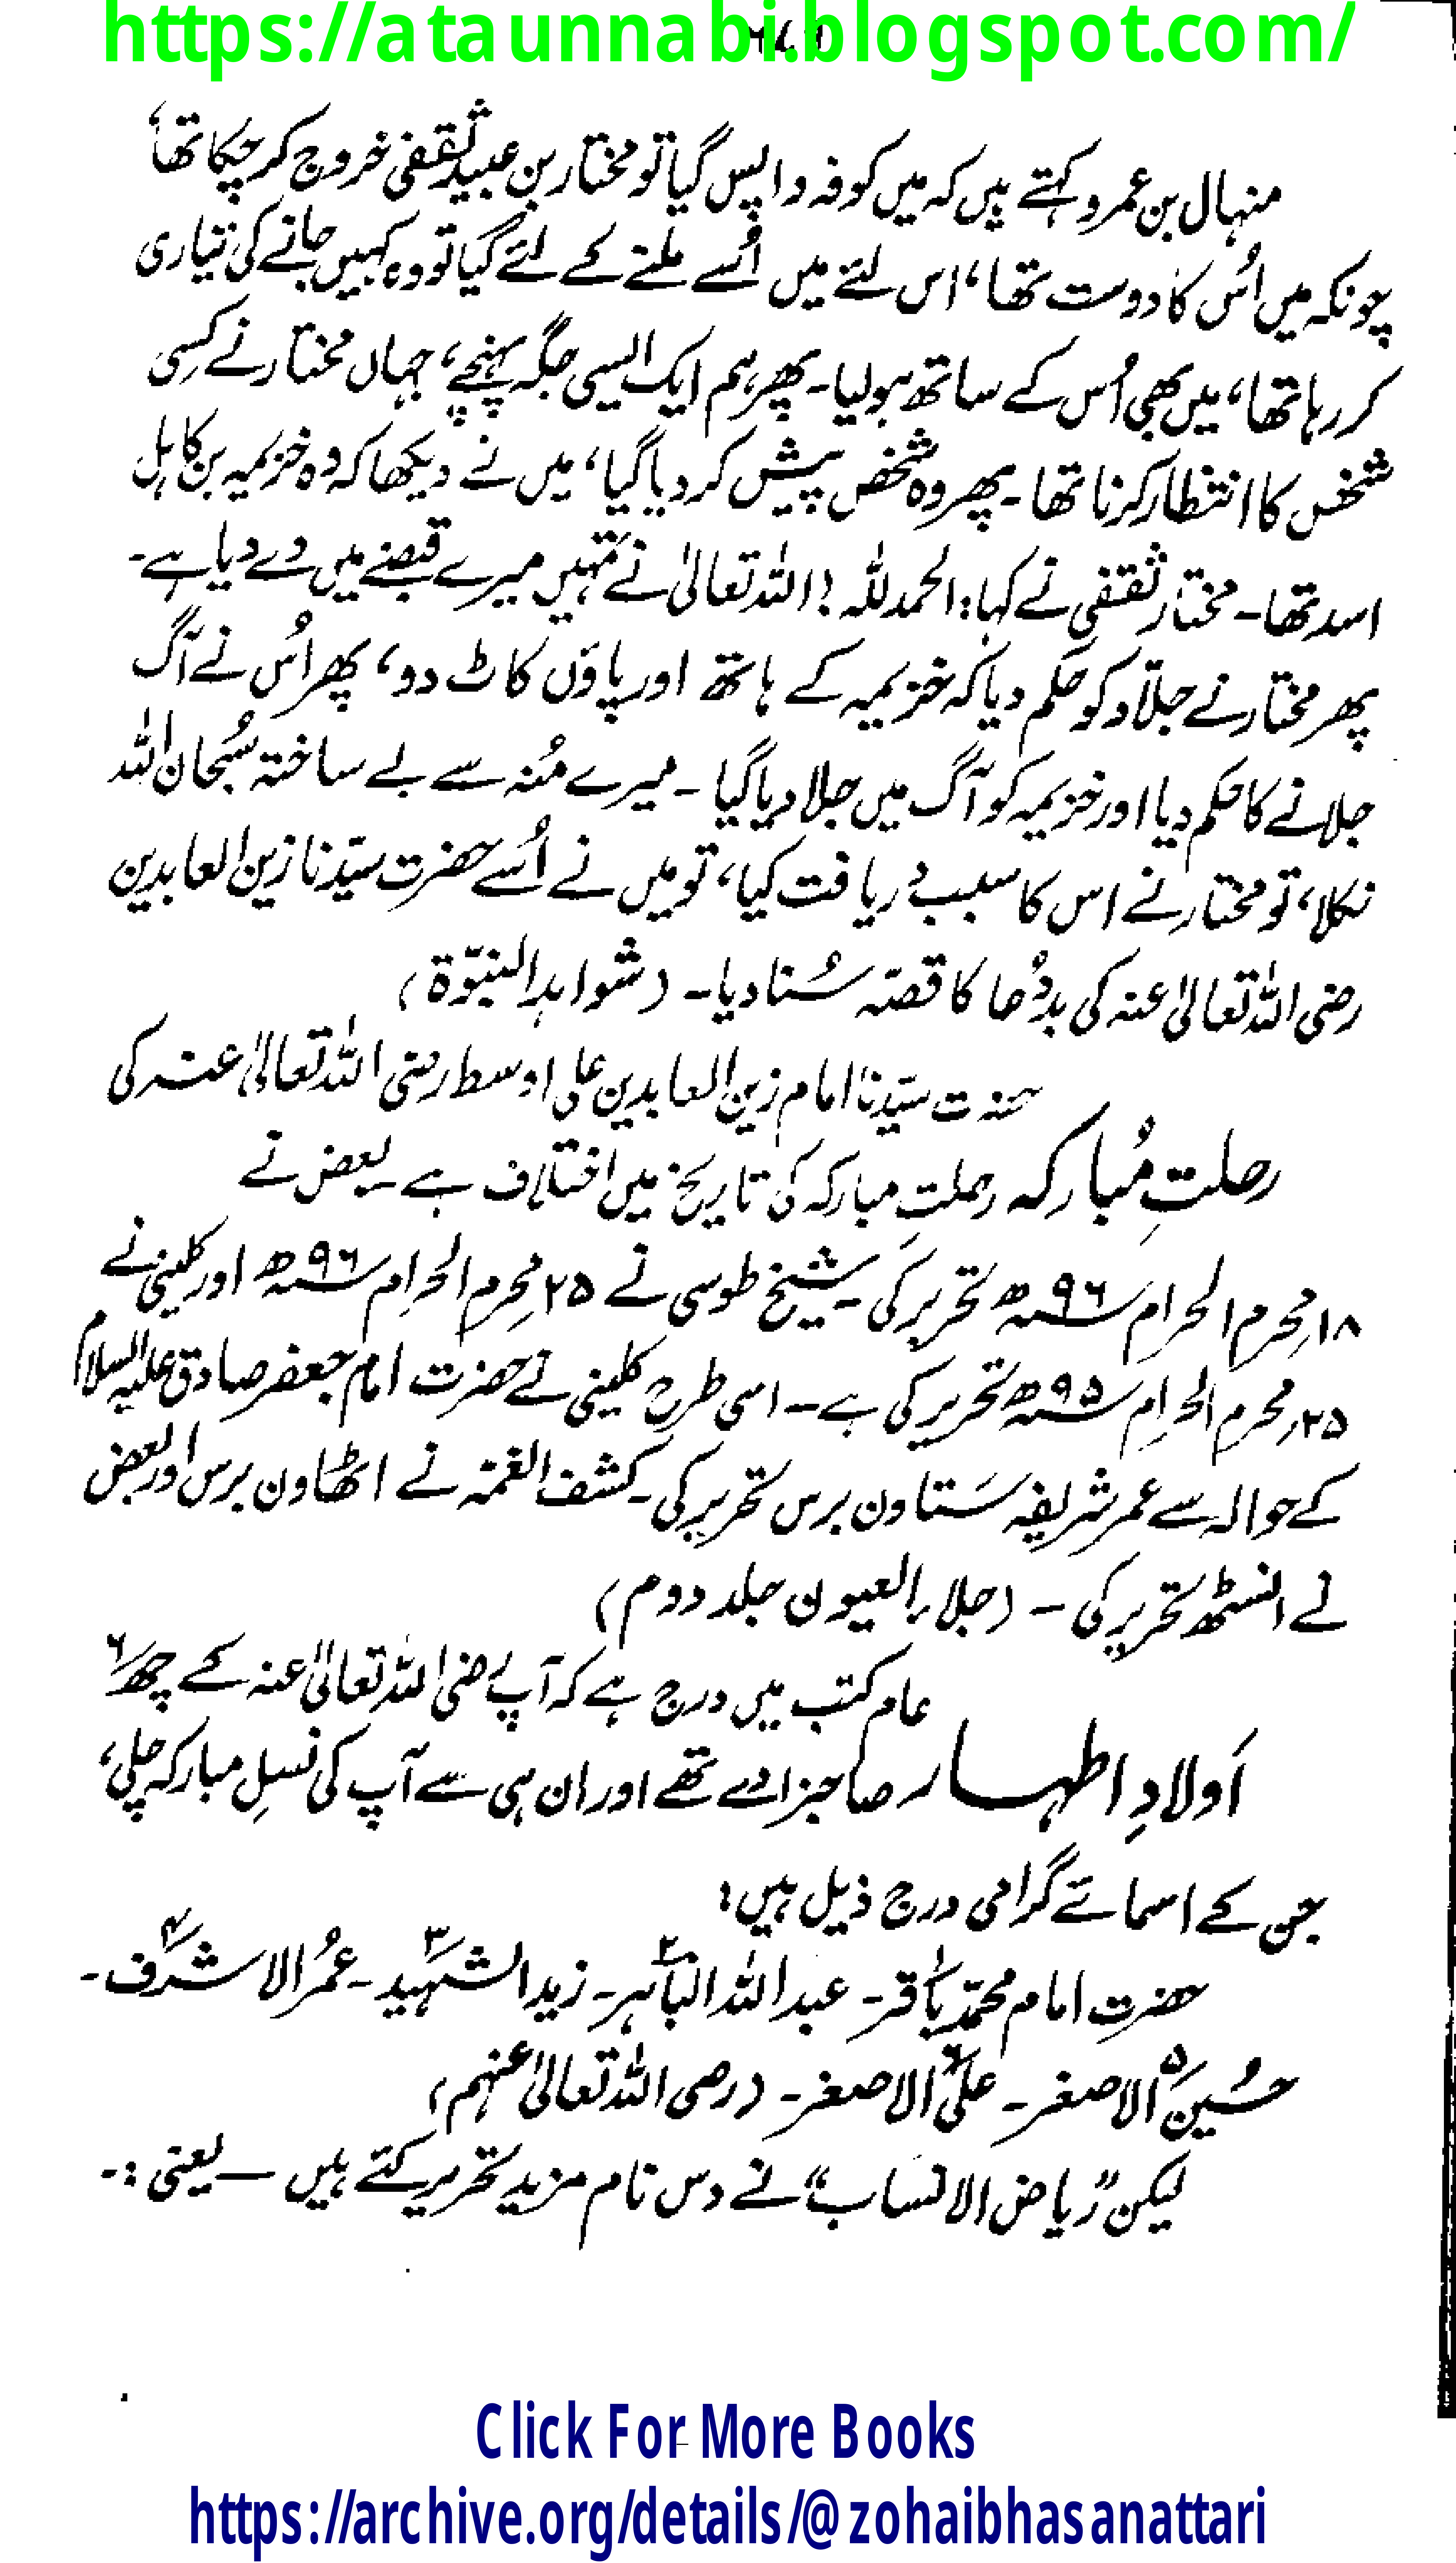 https://ataunnabi.blogspot.com/
منہال بن عمرو کہتے ہیں کہ میں کوفہ واپس گیا تو مختار بن عبید ثقفی خروج کر چکا تھا،
چونکہ میں اُس کا دوست تھا، اس لئے میں اُسے ملنے کے لئے گیا تو وہ کہیں جانے کی تیاری
کر رہا تھا، میں بھی اُس کے ساتھ ہو لیا۔ پھر ہم ایک ایسی جگہ پہنچے، جہاں مختار نے کسِی
شخص کا انتظار کرنا تھا۔ پھر وہ شخص پیش کر دیا گیا، میں نے دیکھا کہ وہ خزیمہ بن کاہل
اسد تھا۔ مختار ثقفی نے کہا: الحمدللّٰہ! اللہ تعالیٰ نے تمہیں میرے قبضے میں دے دیا ہے۔
پھر مختار نے جلّاد کو حکم دیا کہ خزیمہ کے ہاتھ اور پاؤں کاٹ دو، پھر اُس نے آگ
جلانے کا حکم دیا اور خزیمہ کو آگ میں جلا دیا گیا ۔ میرے مُنہ سے بے ساختہ سُبحان اللہ
نکلا، تو مختار نے اس کا سبب دریافت کیا، تو میں نے اُسے حضرت سیّدنا زین العابدین
رضی اللہ تعالیٰ عنہ کی بددُعا کا قصّہ سُنا دیا۔ (شواہد النبوّة)
حضرت سیّدنا امام زین العابدین علی اوسط رضی اللہ تعالیٰ عنہ کی
رحلتِ مُبارکہ رحلتِ مبارکہ کی تاریخ میں اختلاف ہے بعض نے
۱۸ محرم الحرام سنہ ۹۶ھ تحریر کی۔ شیخ طوسی نے ۲۵ محرم الحرام سنہ ۹۶ھ اور کلینی نے
۲۵ محرم الحرام سنہ ۹۵ھ تحریر کی ہے۔ اسی طرح کلینی نے حضرت امام جعفر صادق علیہ السلام
کے حوالہ سے عمر شریفہ ستاون برس تحریر کی۔ کشف الغمّہ نے اٹھاون برس اور بعض
نے انسٹھ تحریر کی ۔ (جلاء العیون جلد دوم)
عام کتب میں درج ہے کہ آپ رضی اللہ تعالیٰ عنہ کے چھ ۶
اَولادِ اطہار صاحبزادے تھے اور ان ہی سے آپ کی نسلِ مبارکہ چلی،
جن کے اسمائے گرامی درج ذیل ہیں:
حضرت امام محمّد باقر۱۔ عبداللہ الباہر۲۔ زید الشہید۳۔ عمُر الاشرف۴۔
حُسین۵ الاصغر۔ علی۶ الاصغر۔ (رضی اللہ تعالیٰ عنہم)
لیکن "ریاض الانساب" نے دس نام مزید تحریر کئے ہیں — یعنی :۔
Click For More Books
https://archive.org/details/@zohaibhasanattari